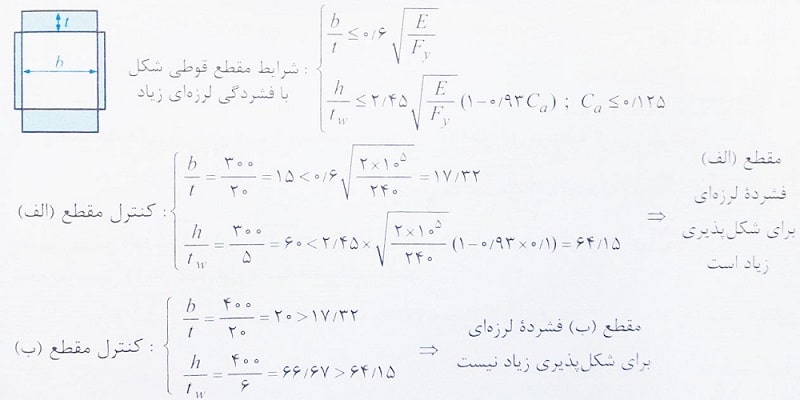 t
b
شرایط مقطع قوطی شکل با فشردگی لرزه‌ای زیاد :
b/t ≤ ۰/۶ √(E/F_y)
h/t_w ≤ ۲/۴۵ √(E/F_y) (۱-۰/۹۳C_a) ; C_a ≤ ۰/۱۲۵
کنترل مقطع (الف) :
b/t = ۳۰۰/۲۰ = ۱۵ < ۰/۶ √(۲×۱۰^۵/۲۴۰) = ۱۷/۳۲
h/t_w = ۳۰۰/۵ = ۶۰ < ۲/۴۵ × √(۲×۱۰^۵/۲۴۰) (۱-۰/۹۳×۰/۱) = ۶۴/۱۵
⇒
مقطع (الف)
فشردهٔ لرزه‌ای
برای شکل‌پذیری
زیاد است
کنترل مقطع (ب) :
b/t = ۴۰۰/۲۰ = ۲۰ > ۱۷/۳۲
h/t_w = ۴۰۰/۶ = ۶۶/۶۷ > ۶۴/۱۵
⇒
مقطع (ب) فشردهٔ لرزه‌ای
برای شکل‌پذیری زیاد نیست